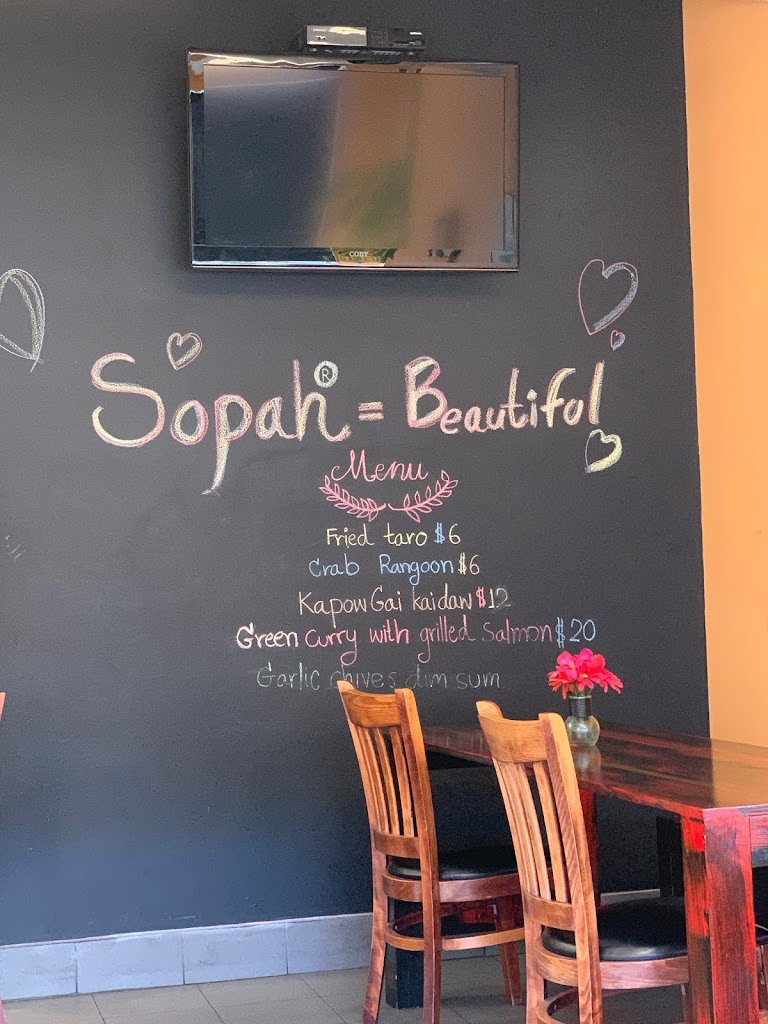 COBY
Sopah® = Beautiful
Menu
Fried taro $6
Crab Rangoon $6
Kapow Gai kaidaw $12
Green curry with grilled Salmon $20
Garlic chives dim sum